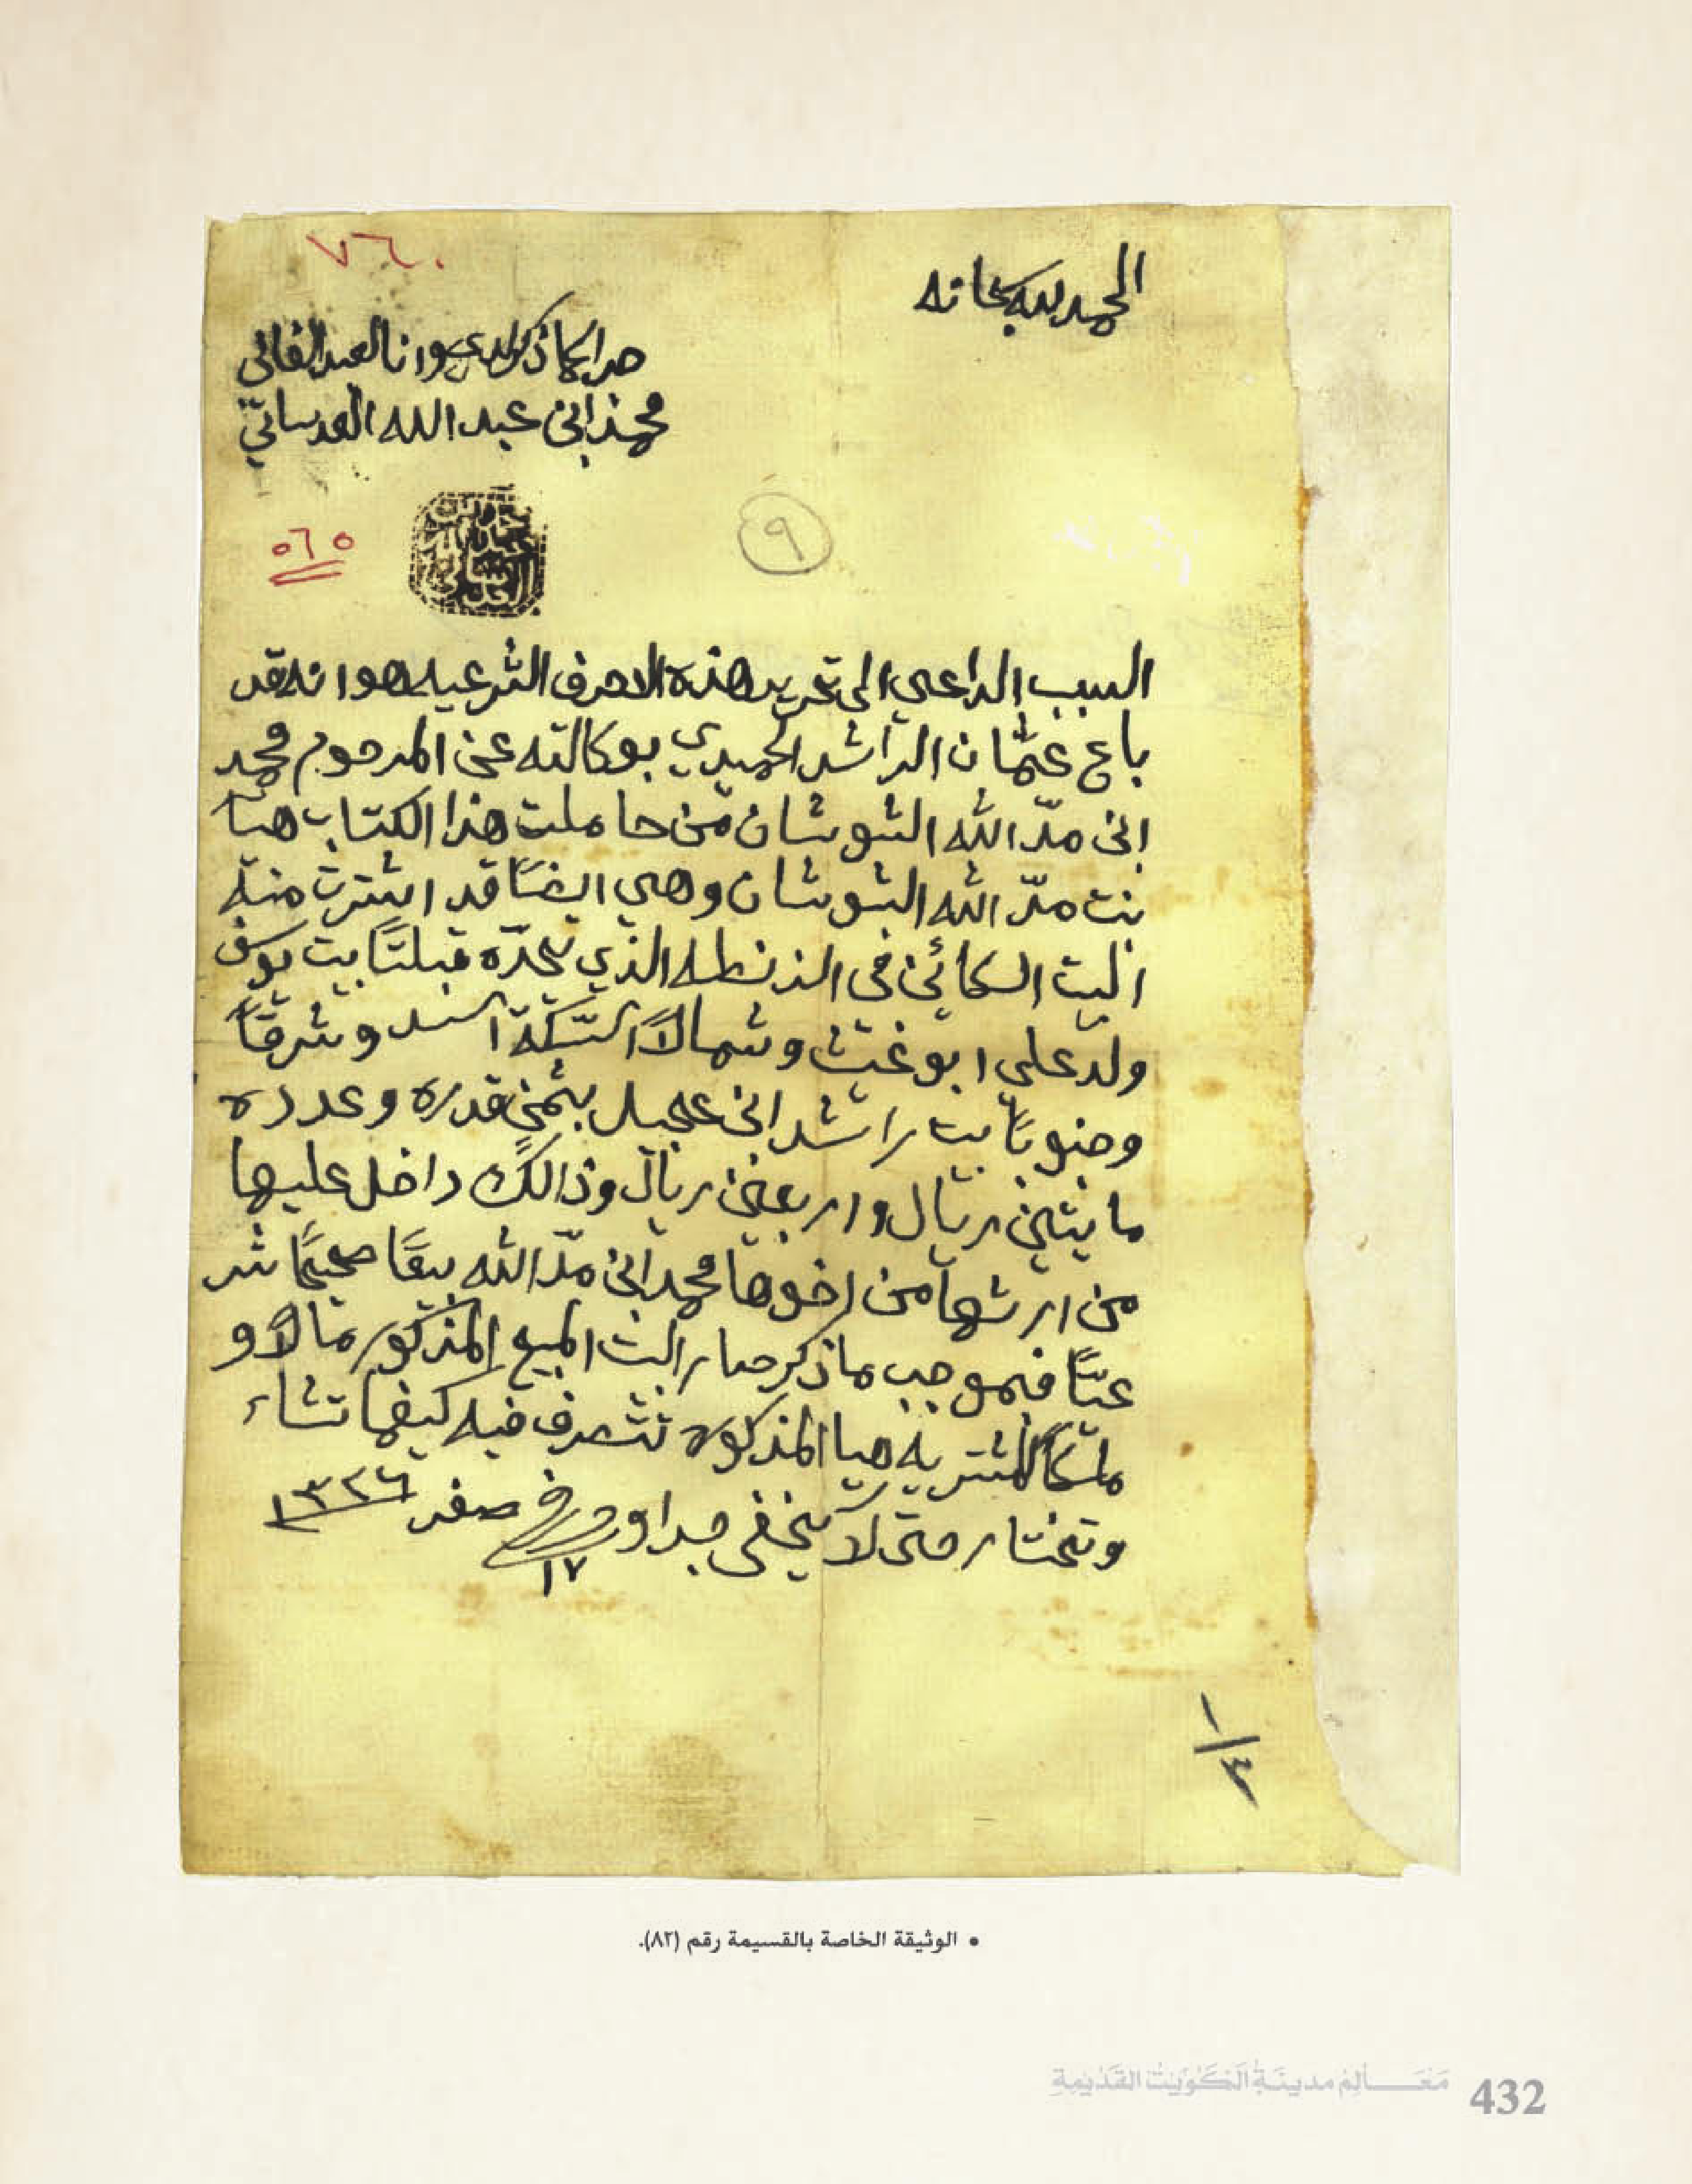 الحمد لله سبحانه
٧٦٠
جرا كما ذكر لدي وانا العبد الفاني
محمد ابن عبد الله العدساني
٩
٥٦٥
السبب الداعي الى تحرير هذه الاحرف الشرعيه هو انه قد
باع عثمان الراشد الحميدي بوكالته عن المرحوم محمد
ابن مدّ الله الشويشان من حاملت هذا الكتاب هيا
بنت مدّ الله الشويشان وهي ايضًا قد اشترت منه
البيت الكائن في الزنطه الذي يحدّه قبلتًا بيت يوسف
ولد علي ابو غيث وشمالًا السّكة السد وشرقًا
وجنوبًا بيت راشد ابن عجيل بثمن قدره وعدده
مايتين ريال واربعين ريال وذالك داخل عليها
من ارثها من اخوها محمد ابن مدّ الله بيعًا صحيحًا شر
عيًّا فبموجب ما ذكر صار البيت المبيع المذكور مالًا و
ملكًا للمشتريه هيا المذكوره تتصرف فيه كيفما تشاء
وتختار حتى لا يخفى جرا وحرر في ١٧ صفر ١٣٢٦
• الوثيقة الخاصة بالقسيمة رقم (٨٢).
مَعَالِم مدينَة الكُوَيت القَديمة
432